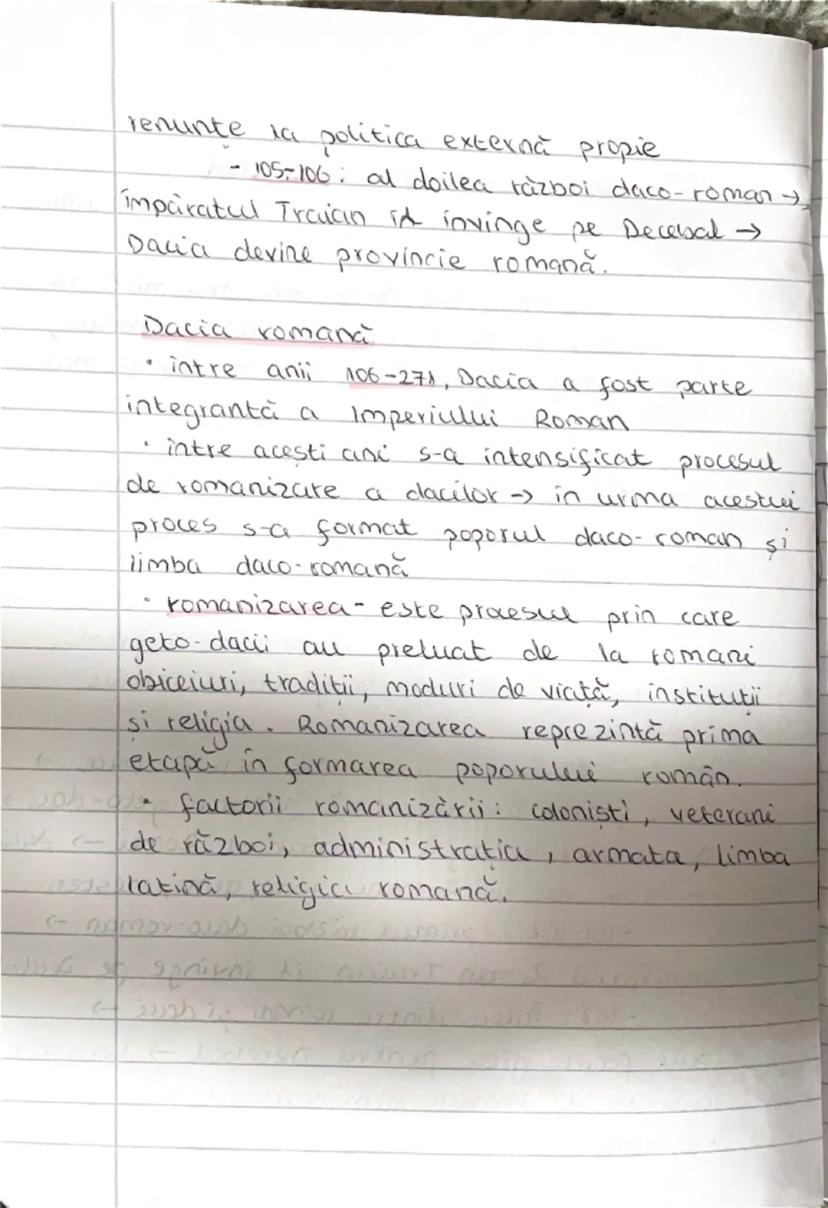 renunțe la politica externă propie
- 105-106: al doilea război daco-roman →
împăratul Traian îl învinge pe Decebal →
Dacia devine provincie romană.
Dacia romană
• între anii 106-271, Dacia a fost parte
integrantă a Imperiului Roman
• între acești ani s-a intensificat procesul
de romanizare a dacilor → în urma acestui
proces s-a format poporul daco-roman și
limba daco-romană
• romanizarea - este procesul prin care
geto-dacii au preluat de la romani
obiceiuri, tradiții, moduri de viață, instituții
și religia. Romanizarea reprezintă prima
etapă în formarea poporului român.
• factorii romanizării: coloniști, veterani
de război, administrația, armata, limba
latină, religia romană.